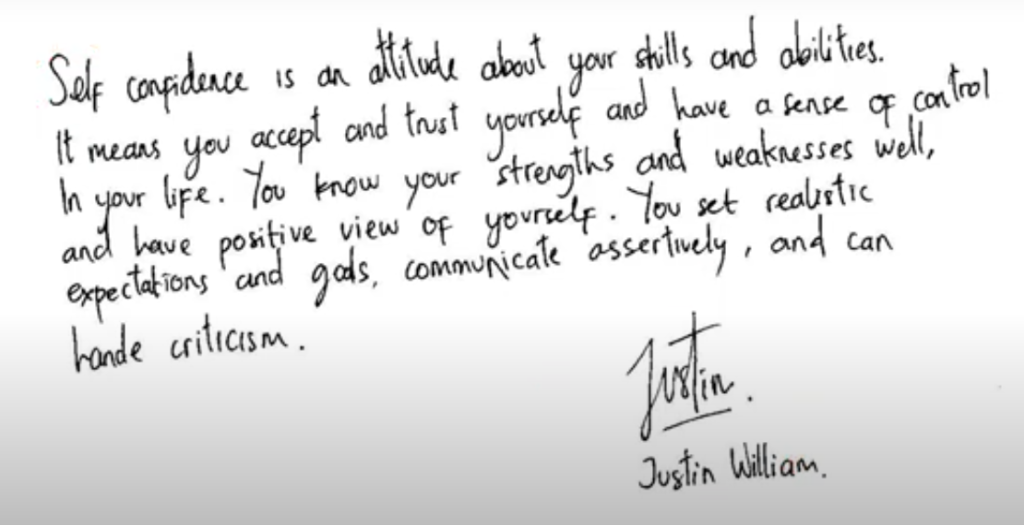 Self confidence is an attitude about your skills and abilities.
It means you accept and trust yourself and have a sense of control
In your life. You know your strengths and weaknesses well,
and have positive view of yourself. You set realistic
expectations and gods, communicate assertively, and can
hande criticism.
Justin.
Justin William.